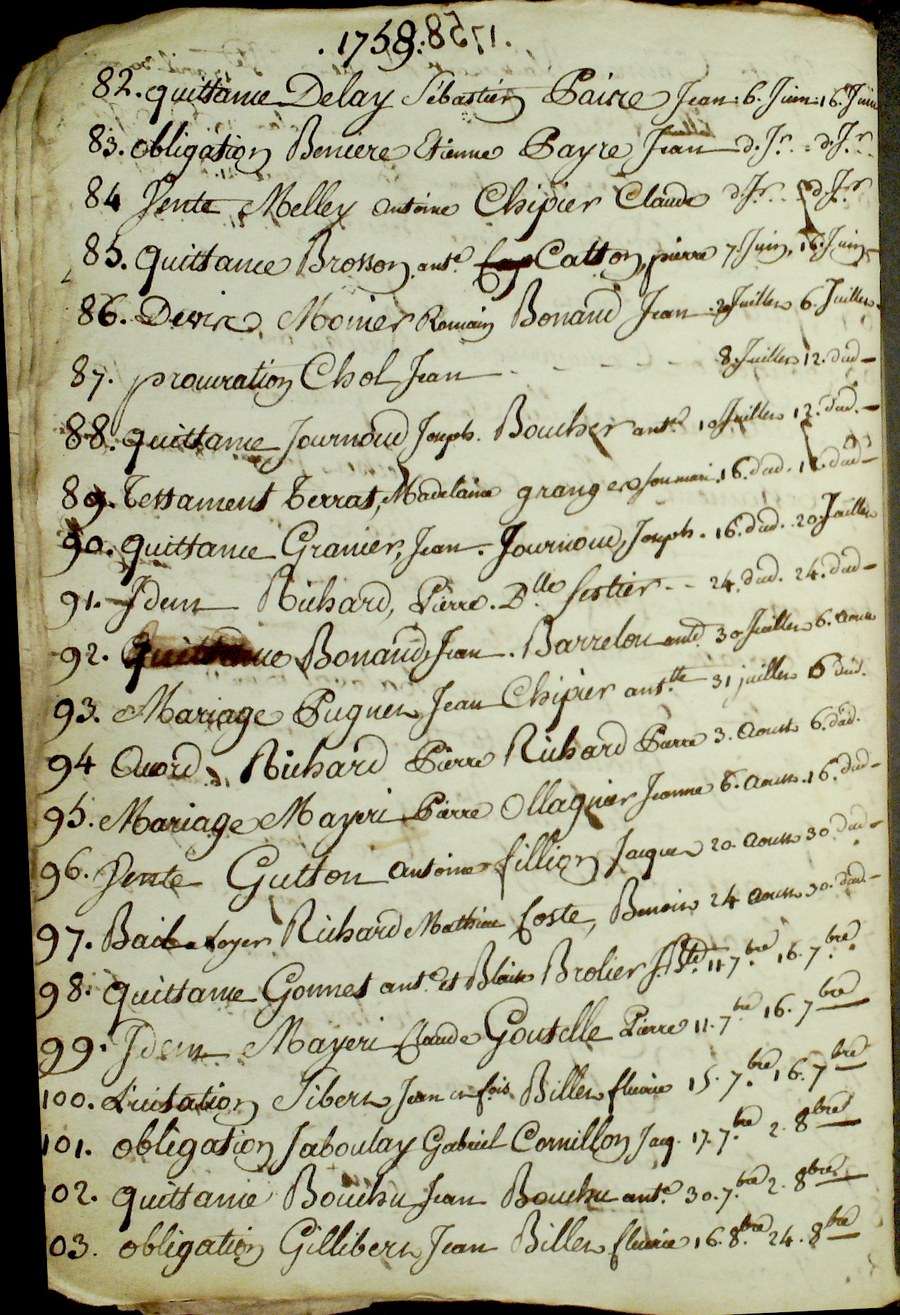 . 1758.
82. quittance Delay Sébastien Paire Jean. 6. Juin. 16. Juin
83. obligation Beniere Etienne Payre, Jean d. Jr. d. Jr.
84 Vente Melley antoine Chipier Claude d. Jr. d. Jr.
85. quittance Brosson, ant.e Catton, pierre 7 Juin, 16. Juin
86. Monier Romain Bonand Jean Juillet 6. Juillet
87. procuration Chol Jean 8. Juillet 12. dud.
88. quittance Journoud Joseph. Boucher ant.e 10 Juillet 12. dud.
89. Testament Terrat, Madelaine granger son mari. 16. dud. dud.
90. quittance Granier, Jean. Journoud, Joseph. 16. dud. 20. Juillet
91. Idem Richard, Pierre. Dlle Sestier 24. dud. 24. dud.
92. Quittance Bonand, Jean. Barrelon and. 30 Juillet 6. Aoust
93. Mariage Pugnet Jean Chipier ant.tte 31 juillet 6 dud.
94 Acord, Richard Pierre Richard Pierre 3. Aoust 6. dud.
95. Mariage Mayeri Pierre Ollagnier Jeanne 6. Aoust. 16. dud
96. Vente Gutton antoine fillion Jacques 20. Aoust 30. dud
97. Bail a Loyer Richard Mathieu Coste, Benoit 24 Aoust 30. dud
98. quittance Gonnet ant.e et Blaise Brolier 11. 7.bre 16. 7.bre
99. Idem Mayeri Claude Goutelle Pierre 11. 7.bre 16. 7.bre
100. Licitation Sibert Jean Billet fleurie 15. 7.bre 16. 7.bre
101. obligation Jaboulay Gabriel Cornillon Jacq. 17. 7.bre 2. 8.bre
102. quittance Bouchu Jean Bouchu ant.e 30. 7.bre 2. 8.bre
103. obligation Gillibert Jean Billet fleurie 16. 8.bre 24. 8.bre